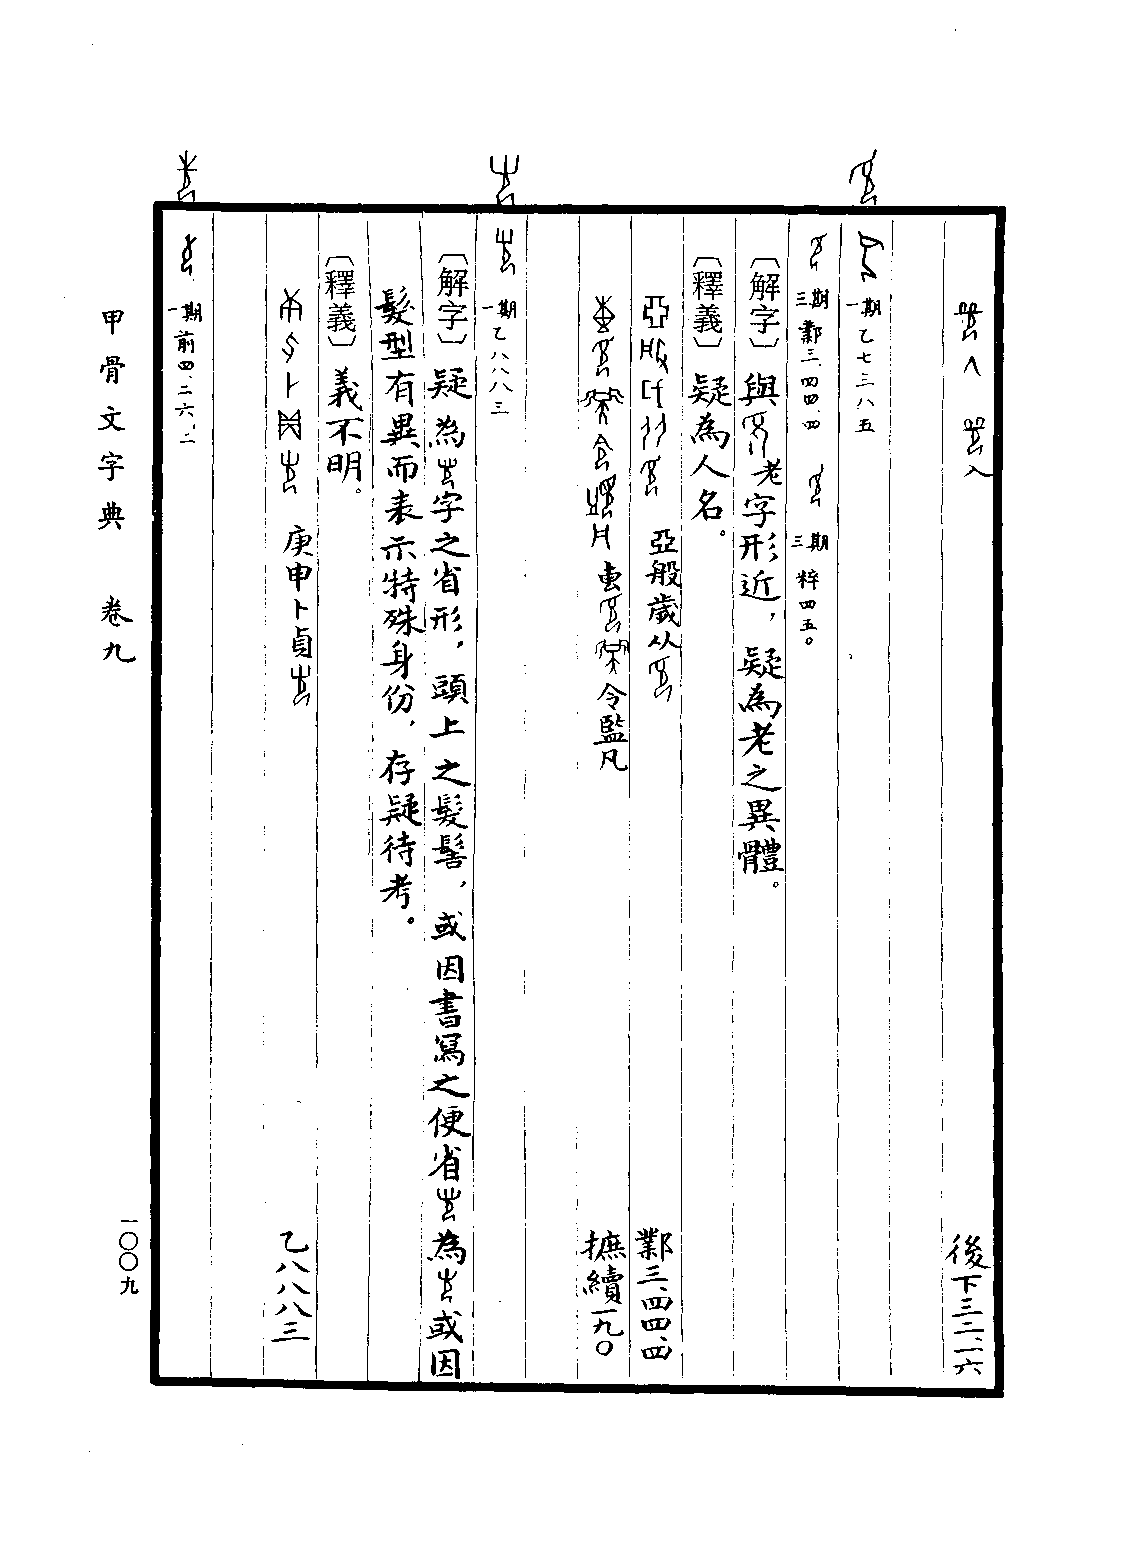 後下三二、一六
一期 乙七三八五
三期 鄴三、四四、四 三期 粹四五。
〔解字〕與老字形近，疑為老之異體。
〔釋義〕疑為人名。
亞般歲从 鄴三、四四、四
叀令監凡 摭續一九〇
一期 乙八八八三
〔解字〕疑為字之省形，頭上之髮髻，或因書寫之便省為或因
髮型有異而表示特殊身份，存疑待考。
〔釋義〕義不明。
庚申卜貞 乙八八八三
一期 前四、二六、二
甲骨文字典 卷九
一〇〇九